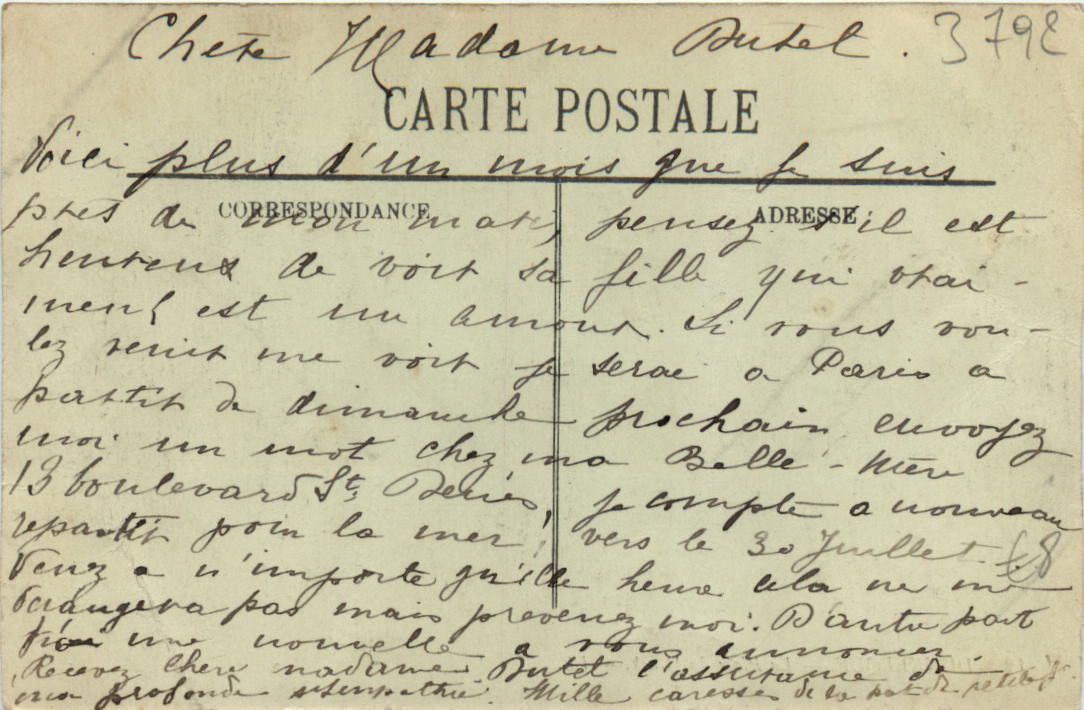 Chère Madame Butel. 3792
CARTE POSTALE
Voici plus d'un mois que je suis
CORRESPONDANCE ADRESSE
près de mon mari, pensez s'il est
heureux de voir sa fille qui vrai-
ment est un amour. Si vous vou-
lez venir me voir je serai a Paris a
partir de dimanche prochain envoyez
moi un mot chez ma Belle-Mère
13 boulevard St. Denis, je compte a nouveau
repartir pour la mer, vers le 30 Juillet.
Venez a n'importe qu'elle heure cela ne me
derangera pas mais prevenez moi. D'autre part
une nouvelle a vous annoncer
Recevez chère madame Butel l'assurance de
ma profonde sympathie. Mille caresses de la part de